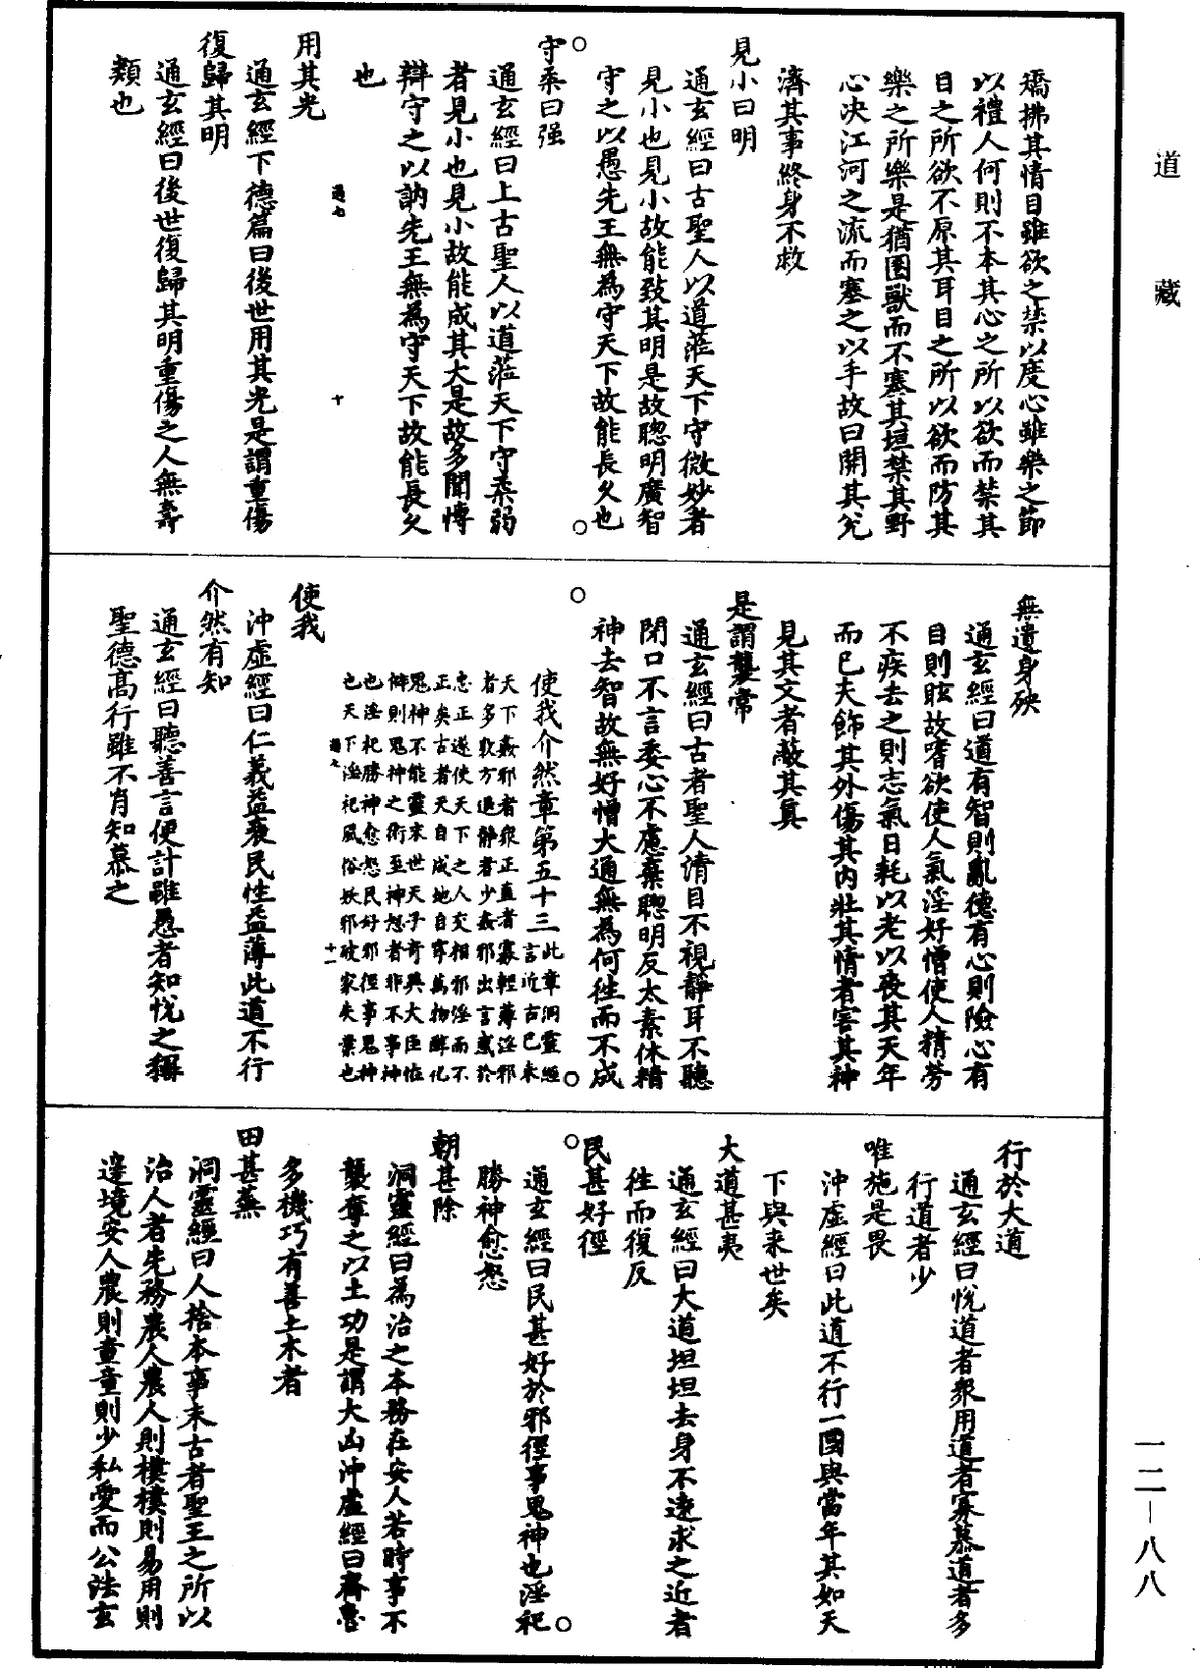 道藏
矯拂其情目雖欲之禁以度心雖樂之節
以禮人何則不本其心之所以欲而禁其
目之所欲不原其耳目之所以欲而防其
樂之所樂是猶圈獸而不塞其垣禁其野
心决江河之流而塞之以手故曰開其兊
濟其事終身不救
見小曰明
通玄經曰古聖人以道蒞天下守微妙者
見小也見小故能致其明是故聰明廣智
守之以愚先王無為守天下故能長久也
守柔曰强
通玄經曰上古聖人以道蒞天下守柔弱
者見小也見小故能成其大是故多聞博
辯守之以訥先王無為守天下故能長久
也
通七
十
用其光
通玄經下德篇曰後世用其光是謂重傷
復歸其明
通玄經曰後世復歸其明重傷之人無壽
類也
無遺身殃
通玄經曰道有智則亂德有心則險心有
目則眩故嗜欲使人氣淫好憎使人精勞
不疾去之則志氣日耗以老以喪其天年
而已夫飾其外傷其內壯其情者害其神
見其文者蔽其真
是謂襲常
通玄經曰古者聖人清目不視靜耳不聽
閉口不言委心不慮棄聰明反太素休精
神去智故無好憎大通無為何徃而不成
使我介然章第五十三此章洞靈經
言近古已來
天下姦邪者衆正直者寡輕薄淫邪
者多敦方退靜者少姦邪出言惑於
忠正遂使天下之人交相邪淫而不
正矣古者天自成地自寧萬物醇化
鬼神不能靈末世天子奇與大臣恠
僻則鬼神之術至神怒者非不事神
也淫祀勝神愈怒民好邪徑事鬼神
也天下淫祀風俗妖邪破家失業也
通七
十一
使我
沖虛經曰仁義益衰民性益薄此道不行
介然有知
通玄經曰聽善言便計雖愚者知悅之稱
聖德高行雖不肖知慕之
行於大道
通玄經曰悅道者衆用道者寡慕道者多
行道者少
唯施是畏
沖虛經曰此道不行一國與當年其如天
下與来世矣
大道甚夷
通玄經曰大道坦坦去身不遠求之近者
徃而復反
民甚好徑
通玄經曰民甚好於邪徑事鬼神也淫祀
勝神愈怒
朝甚除
洞靈經曰為治之本務在安人若時事不
襲奪之以土功是謂大凶沖虛經曰齊魯
多機巧有善土木者
田甚蕪
洞靈經曰人捨本事末古者聖王之所以
治人者先務農人農人則樸樸則易用則
邊境安人農則童童則少私愛而公法玄
一二—八八